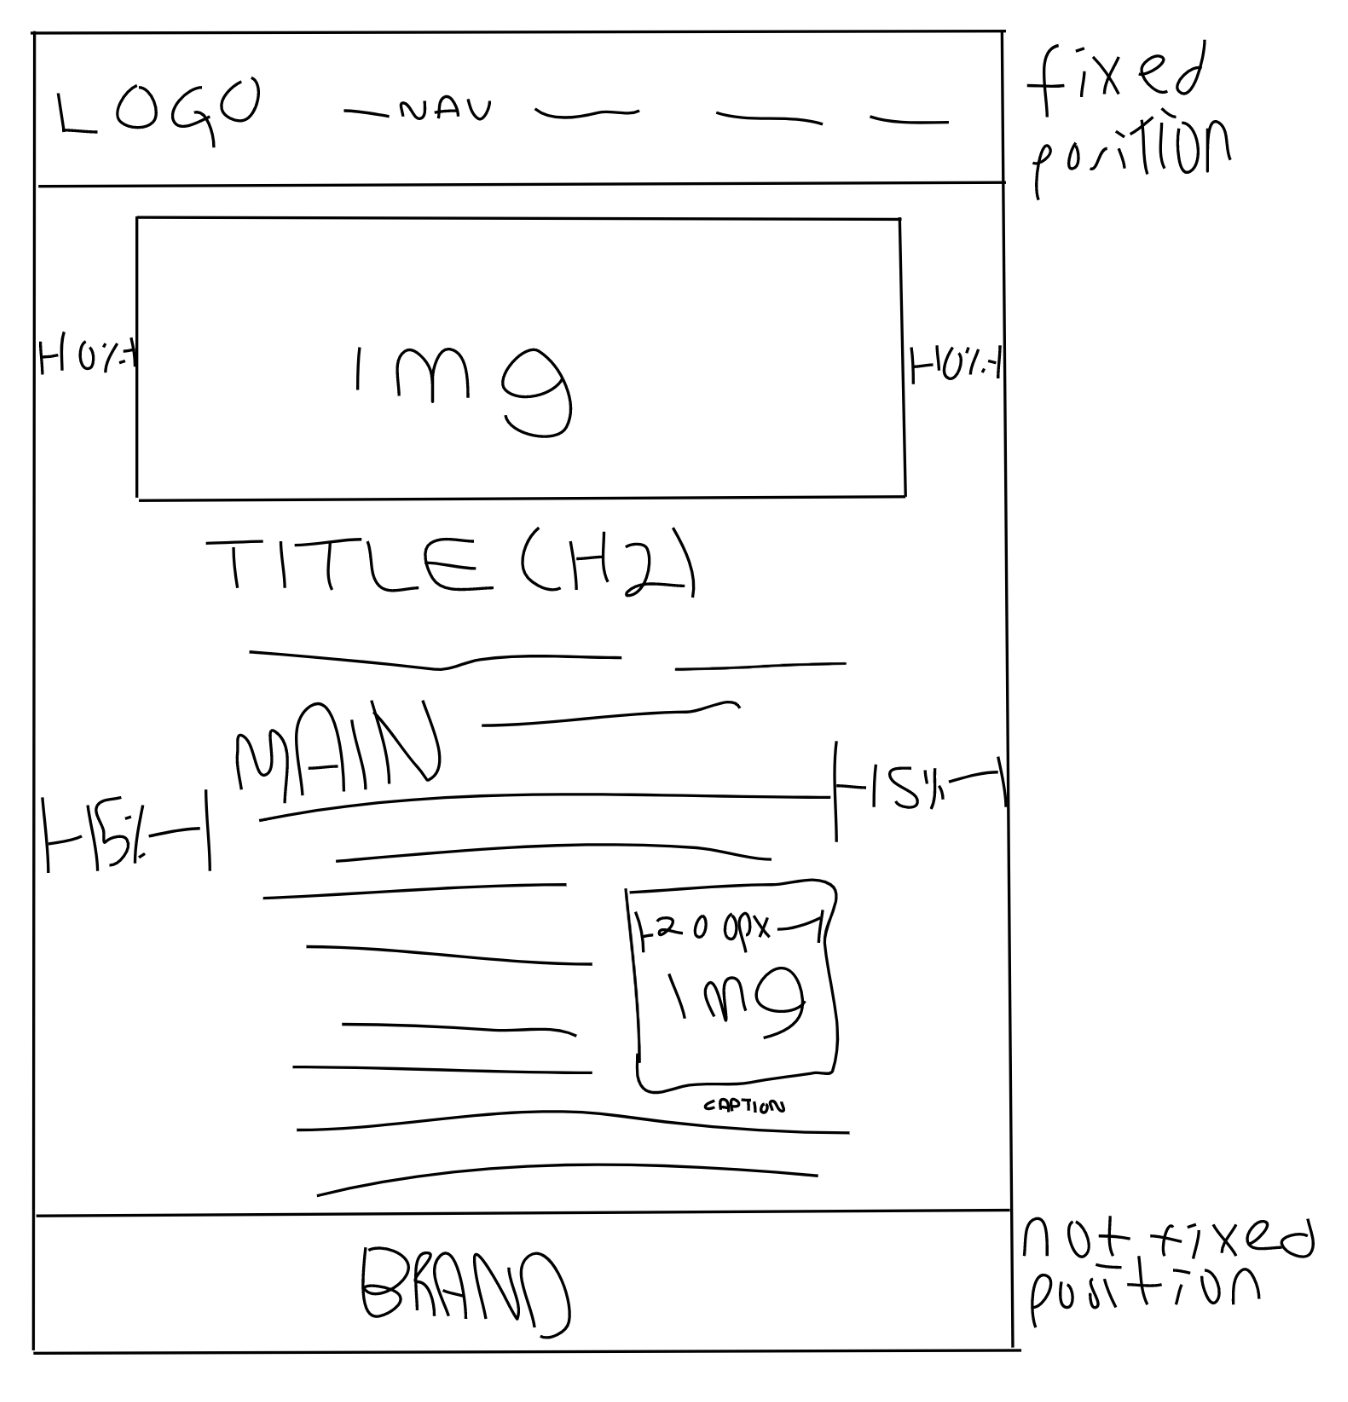 LOGO
NAV
fixed
position
10%
img
10%
TITLE (H2)
MAIN
15%
15%
200px
img
CAPTION
BRAND
not fixed
position